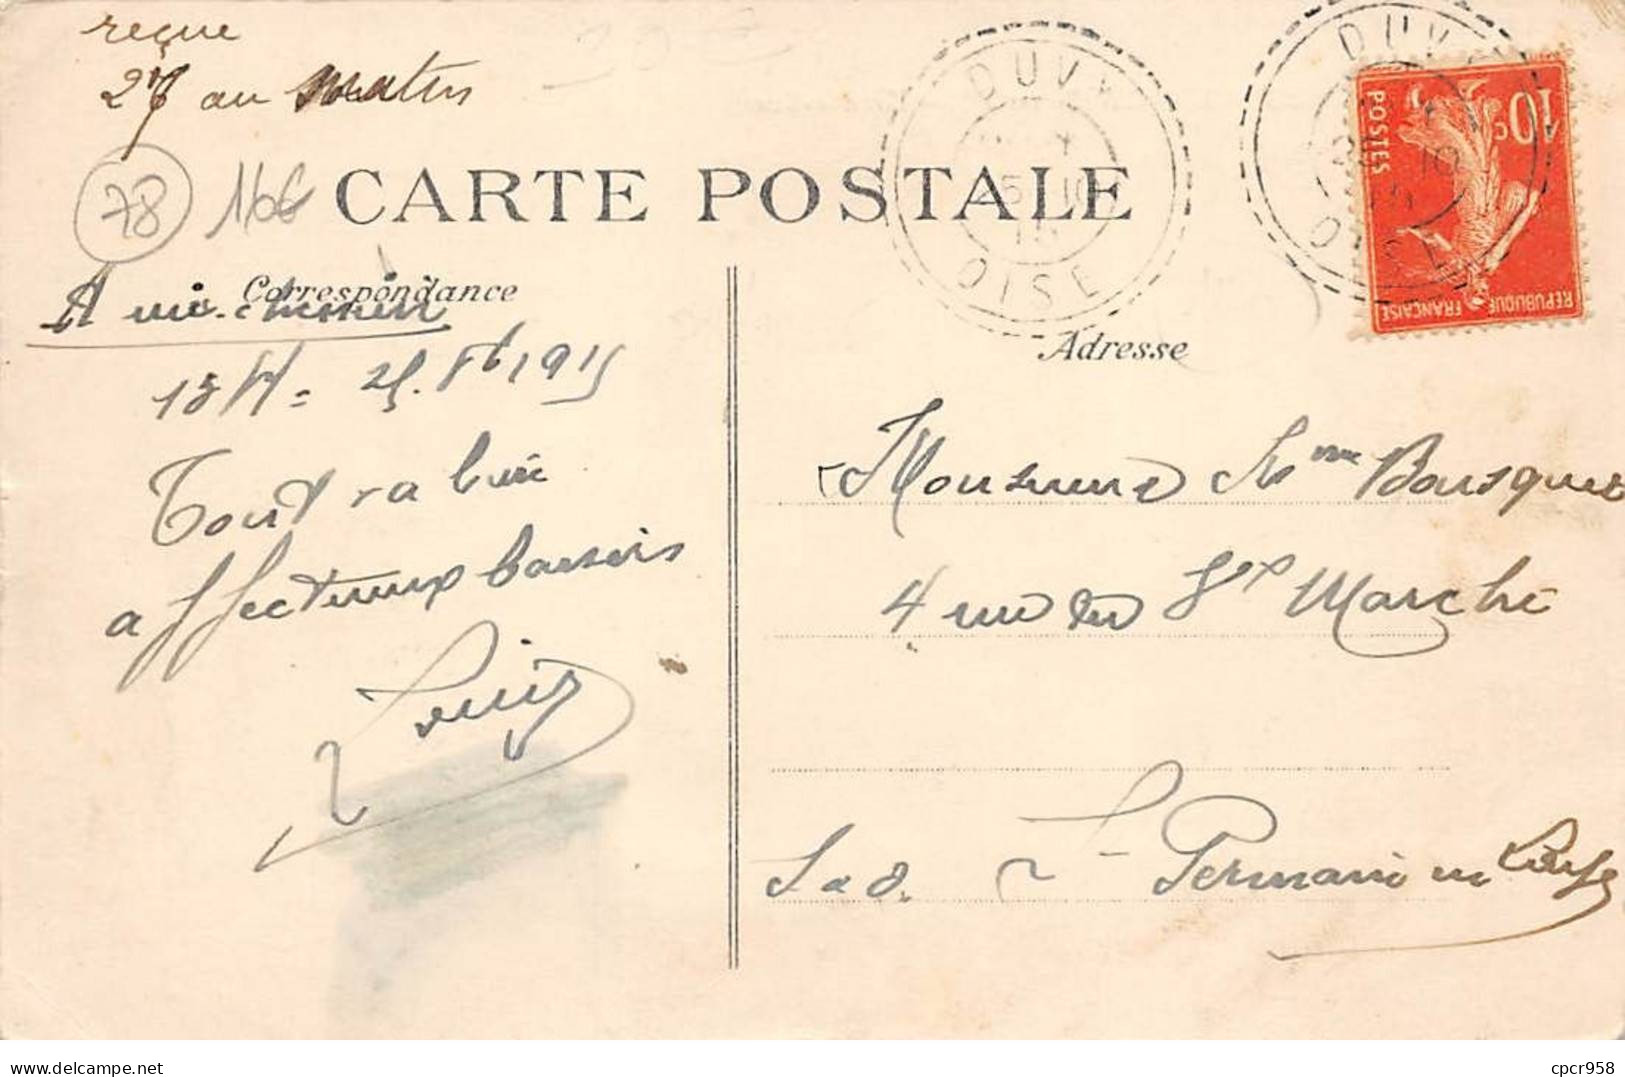 reçue
27 au matin
78
CARTE POSTALE
Correspondance
A mi-chemin
Tout va bien
affectueux baisers
Louis
DUVY
25 10
15
OISE
DUVY
10
OISE
10c
POSTES
REPUBLIQUE FRANÇAISE
Adresse
Monsieur Bousquet
4 rue du Vx Marché
St Germain en Laye
S et O
delcampe.net
cpcr958